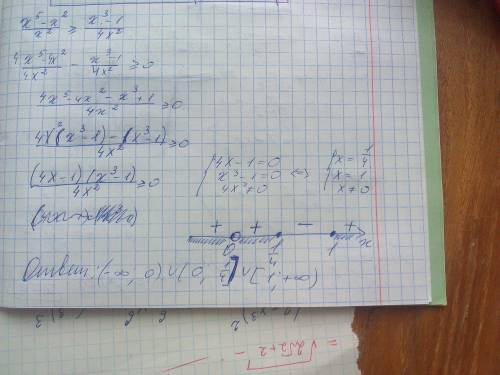 (x^5 - x^2)/x^2 ≥ (x^3 - 1)/4x^2
(4x^5 - 4x^2)/4x^2 - (x^3 - 1)/4x^2 ≥ 0
(4x^5 - 4x^2 - x^3 + 1)/4x^2 ≥ 0
(4x^2(x^3 - 1) - (x^3 - 1))/4x^2 ≥ 0
((4x - 1)(x^3 - 1))/4x^2 ≥ 0
{ 4x - 1 = 0 ⇔ { x = 1/4
x^3 - 1 = 0 x = 1
4x^2 ≠ 0 x ≠ 0
+ + - +
0 1/4 1 x
Ответ: (-∞, 0) ∪ (0, 1/4] ∪ [1, +∞)
= √2√2+2 -